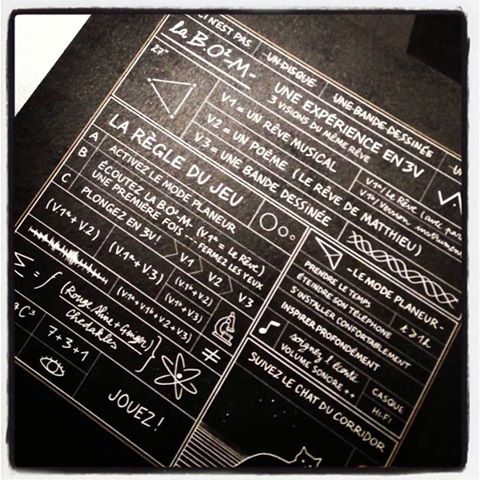 N'EST PAS -UN DISQUE- UNE BANDE-DESSINÉE
la BO²-M-
UNE EXPÉRIENCE EN 3V
3 VISIONS DU MÊME RÊVE
27
V1 = UN RÊVE MUSICAL
V2 = UN POÈME (LE RÊVE DE MATTHIEU)
V3 = UNE BANDE DESSINÉE
LA RÈGLE DU JEU
A ACTIVEZ LE MODE PLANEUR
B ÉCOUTEZ LA BO²-M- (V1ᵃ = LE RÊVE)
UNE PREMIÈRE FOIS --- FERMEZ LES YEUX
C PLONGEZ EN 3V!
V1 V2 V3
(V1ᵃ + V2) (V1ᵃ + V3)
(V1ᵃ + V2)
(V1ᵃ + V3)
(V1ᵃ + V1ᵇ + V2 + V3)
Σ = ∫ (Rouge Aline + Ginger) Chedekles
≠
C³
7+3+1
JOUEZ!
- LE MODE PLANEUR -
PRENDRE LE TEMPS
ÉTEINDRE SON TÉLÉPHONE
S'INSTALLER CONFORTABLEMENT
t > 1h
INSPIRER PROFONDÉMENT
soignez l'écoute
VOLUME SONORE ++
CASQUE
Hi-Fi
SUIVEZ LE CHAT DU CORRIDOR